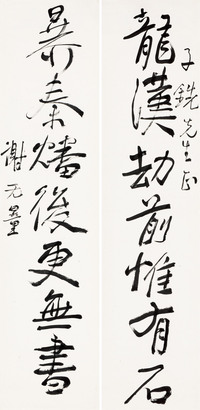 龍漢劫前惟有石
子銑先生正
暴秦燔後更無書
謝无量